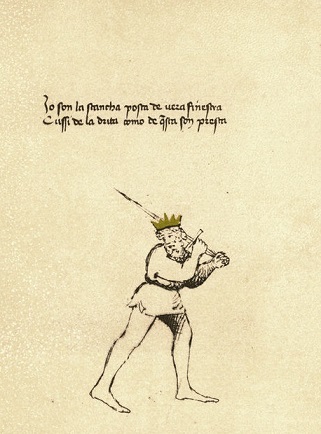 Io son la stancha posta de vera finestra
Cussi de la drita como de q̃sta son presta